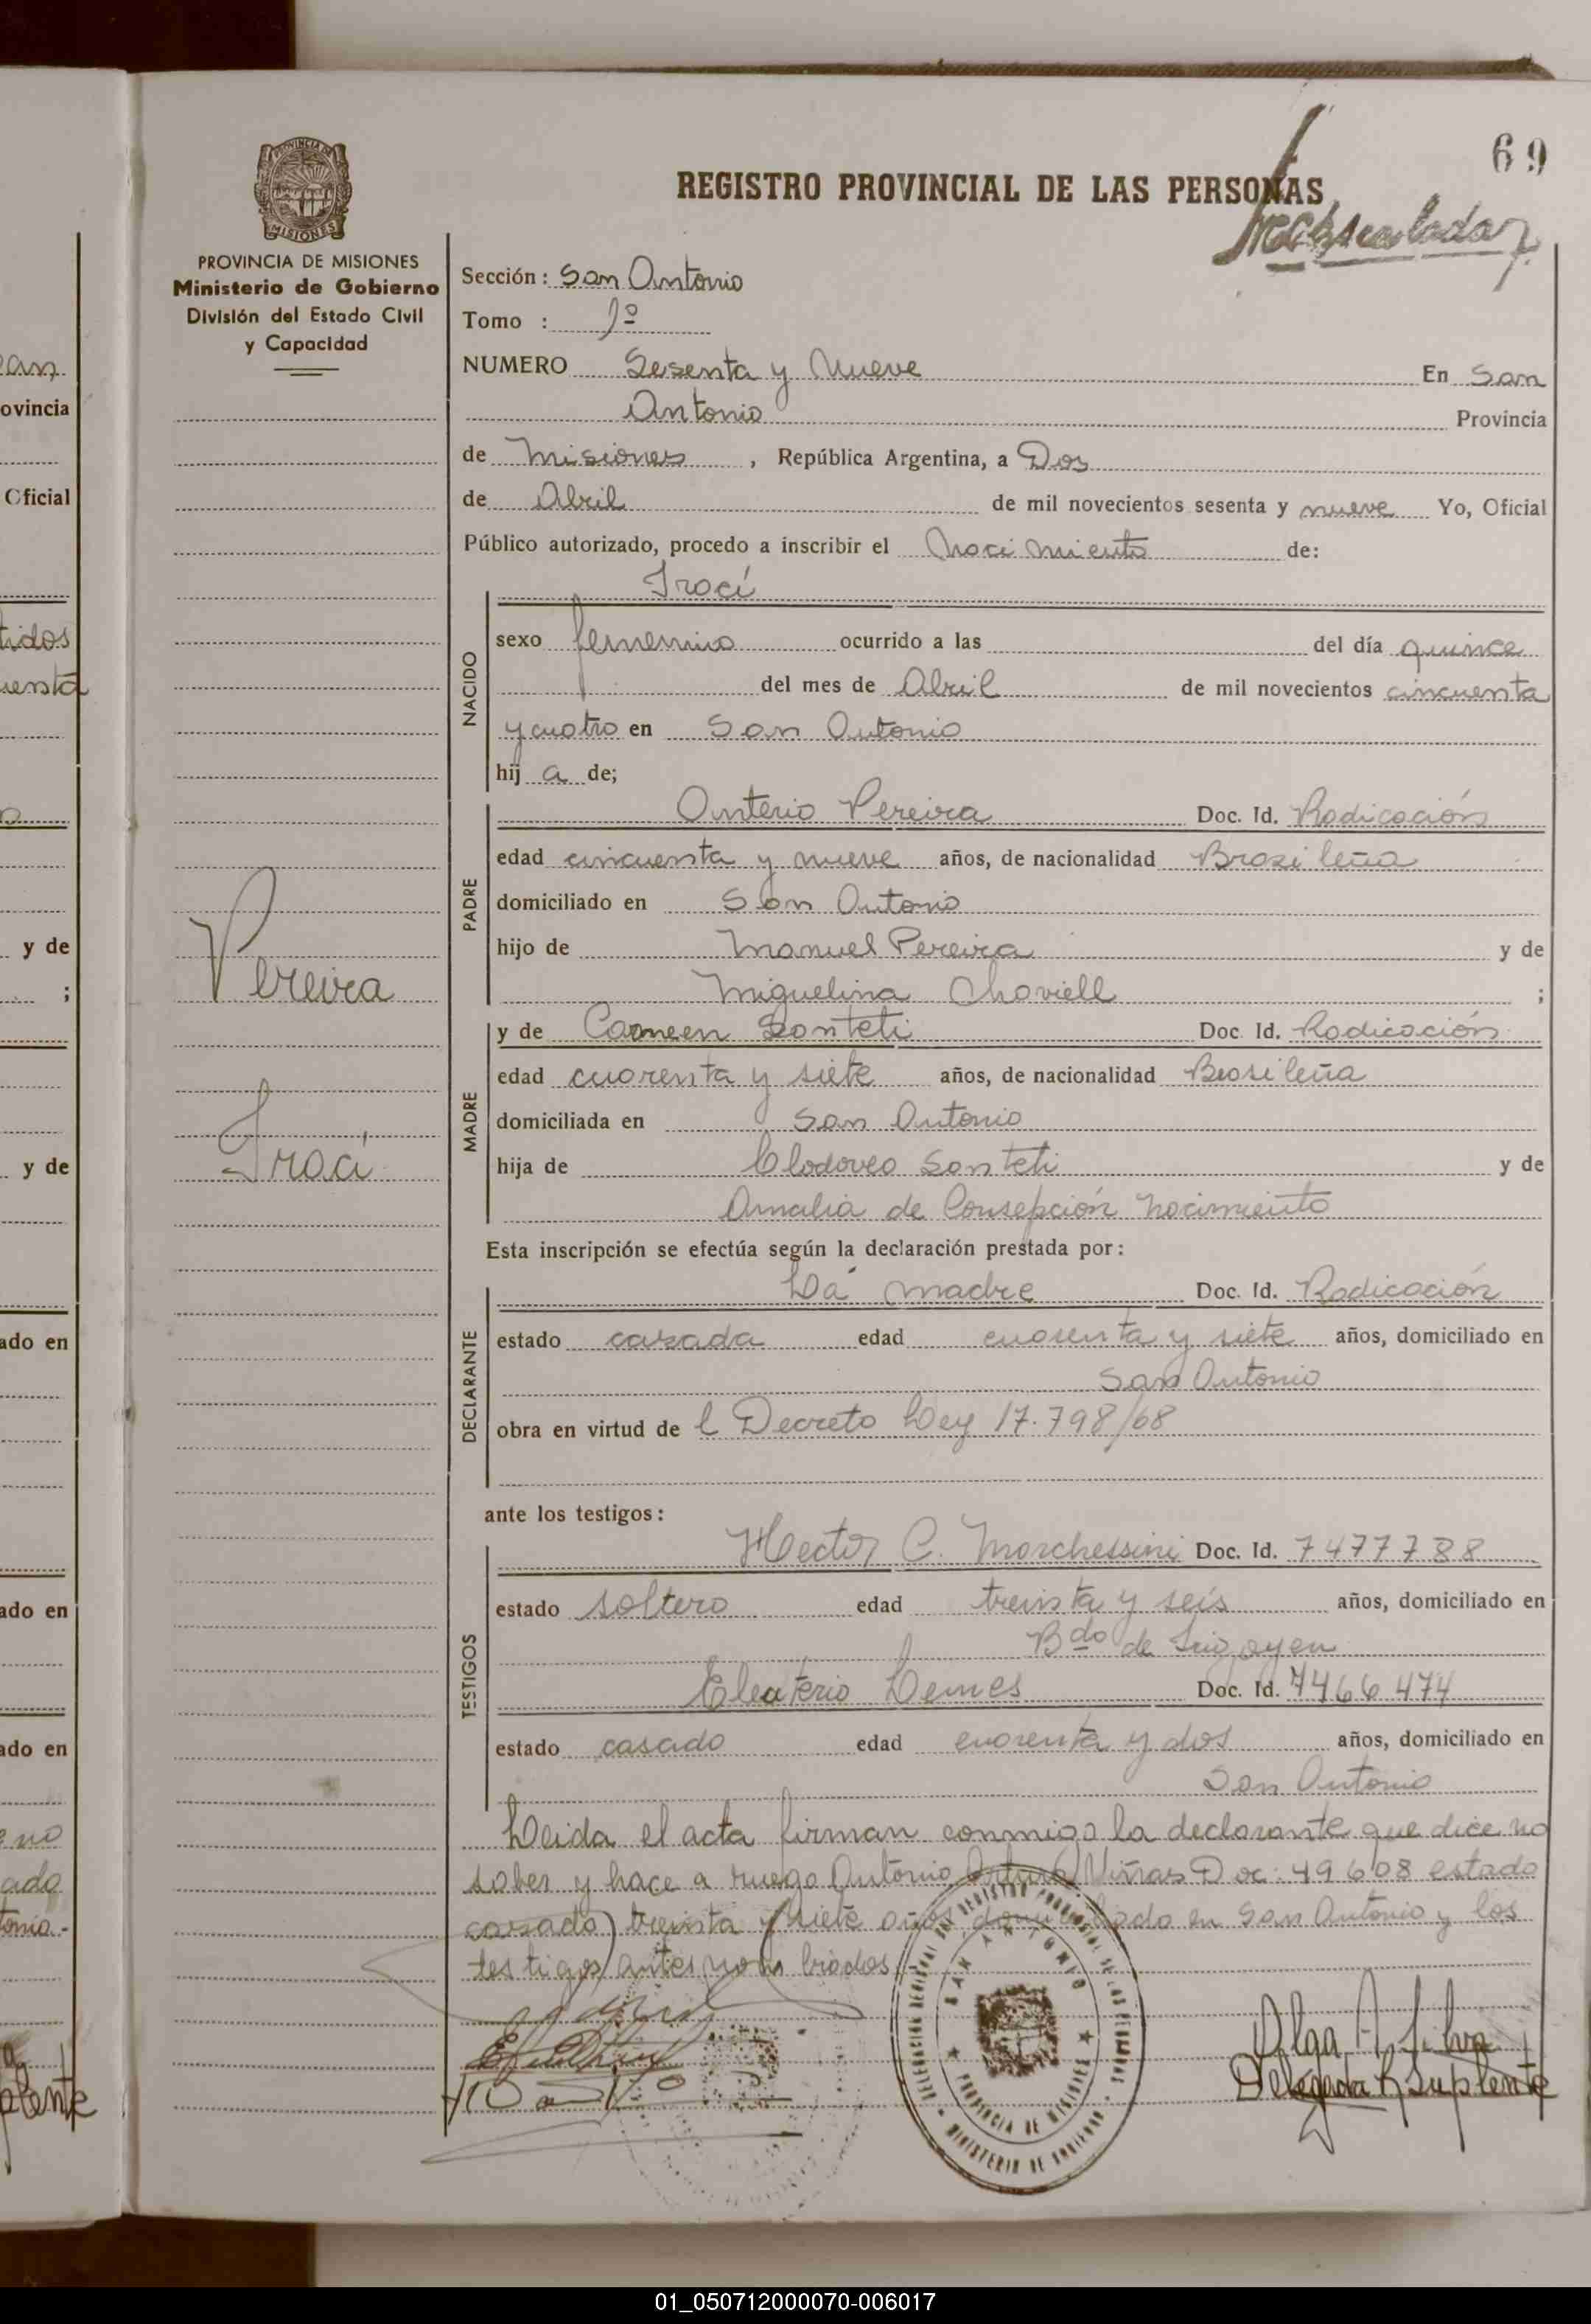 69
REGISTRO PROVINCIAL DE LAS PERSONAS
PROVINCIA DE MISIONES
Ministerio de Gobierno
División del Estado Civil
y Capacidad
Sección: San Antonio
Tomo : 1º
NUMERO Sesenta y Nueve En San
Antonio Provincia
de Misiones, República Argentina, a Dos
de Abril de mil novecientos sesenta y nueve Yo, Oficial
Público autorizado, procedo a inscribir el Nacimiento de:
Iraci
NACIDO
sexo femenino ocurrido a las del día quince
del mes de Abril de mil novecientos cincuenta
y cuatro en San Antonio
hij a de;
PADRE
Anterio Pereira Doc. Id. Radicación
edad cincuenta y nueve años, de nacionalidad Brasileña
domiciliado en San Antonio
hijo de Manuel Pereira y de
Miguelina Choviell ;
Pereira
Iraci
MADRE
y de Carmen Santeti Doc. Id. Radicación
edad cuarenta y siete años, de nacionalidad Brasileña
domiciliada en San Antonio
hija de Clodoveo Santeti y de
Amalia de Consepción Nacimiento
Esta inscripción se efectúa según la declaración prestada por:
DECLARANTE
La madre Doc. Id. Radicación
estado casada edad cuarenta y siete años, domiciliado en
San Antonio
obra en virtud de l Decreto Ley 17.798/68
ante los testigos:
TESTIGOS
Hector C. Marchessini Doc. Id. 7477788
estado soltero edad treinta y seis años, domiciliado en
Bdo de Irigoyen
Eleuterio Lemes Doc. Id. 7466474
estado casado edad cuarenta y dos años, domiciliado en
San Antonio
Leida el acta firman conmigo la declarante que dice no
saber y hace a ruego Antonio Arturo Viñas Doc: 49608 estado
casado treinta y siete años domiciliado en San Antonio y los
testigos antes nombrados
SAN ANTONIO
PROVINCIA DE MISIONES
MINISTERIO DE GOBIERNO
Olga A. Silva
Delegada R Suplente
ovincia
Oficial
y de
;
y de
ado en
ado en
ado en
01_050712000070-006017